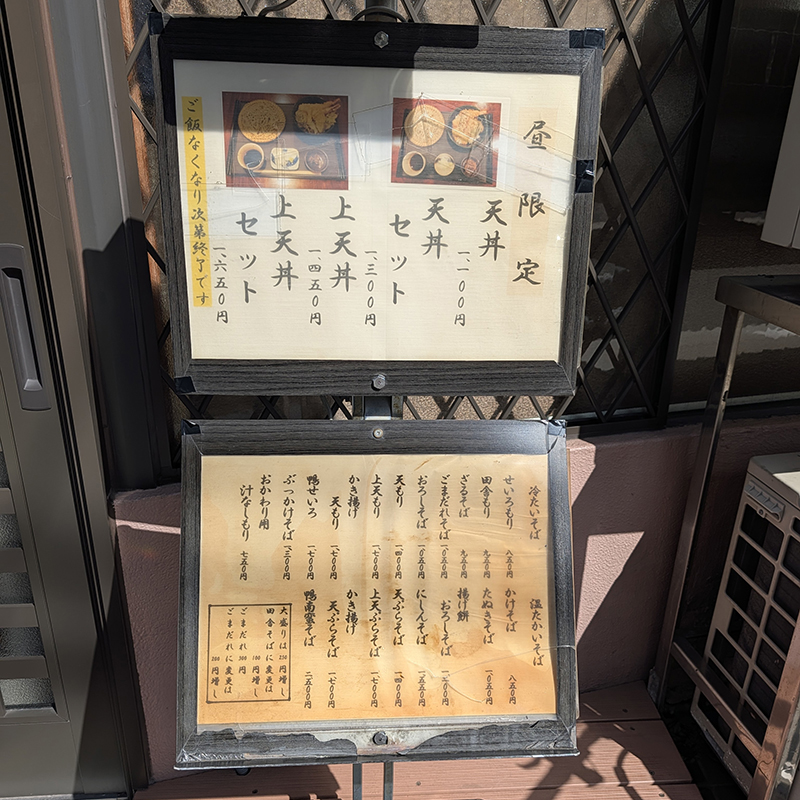 昼限定
天丼
一、一〇〇円
天丼
セット
一、三〇〇円
上天丼
一、四五〇円
上天丼
セット
一、六五〇円
ご飯なくなり次第終了です
冷たいそば
せいろもり 八五〇円
田舎もり 九五〇円
ざるそば 九五〇円
ごまだれそば 一〇五〇円
おろしそば 一〇五〇円
天もり 一四〇〇円
上天もり 一七〇〇円
かき揚げ
天もり 一七〇〇円
鴨せいろ 一七〇〇円
ぶっかけそば 一三〇〇円
おかわり用
汁なしもり 七五〇円
温たかいそば
かけそば 八五〇円
たぬきそば 一〇五〇円
揚げ餅
おろしそば
にしんそば 一五五〇円
天ぷらそば 一四〇〇円
上天ぷらそば 一七〇〇円
かき揚げ
天ぷらそば 一七〇〇円
鴨南蛮そば
大盛りは250円増し
田舎そばに変更は
100円増し
ごまだれ300円
ごまだれに変更は
200円増し